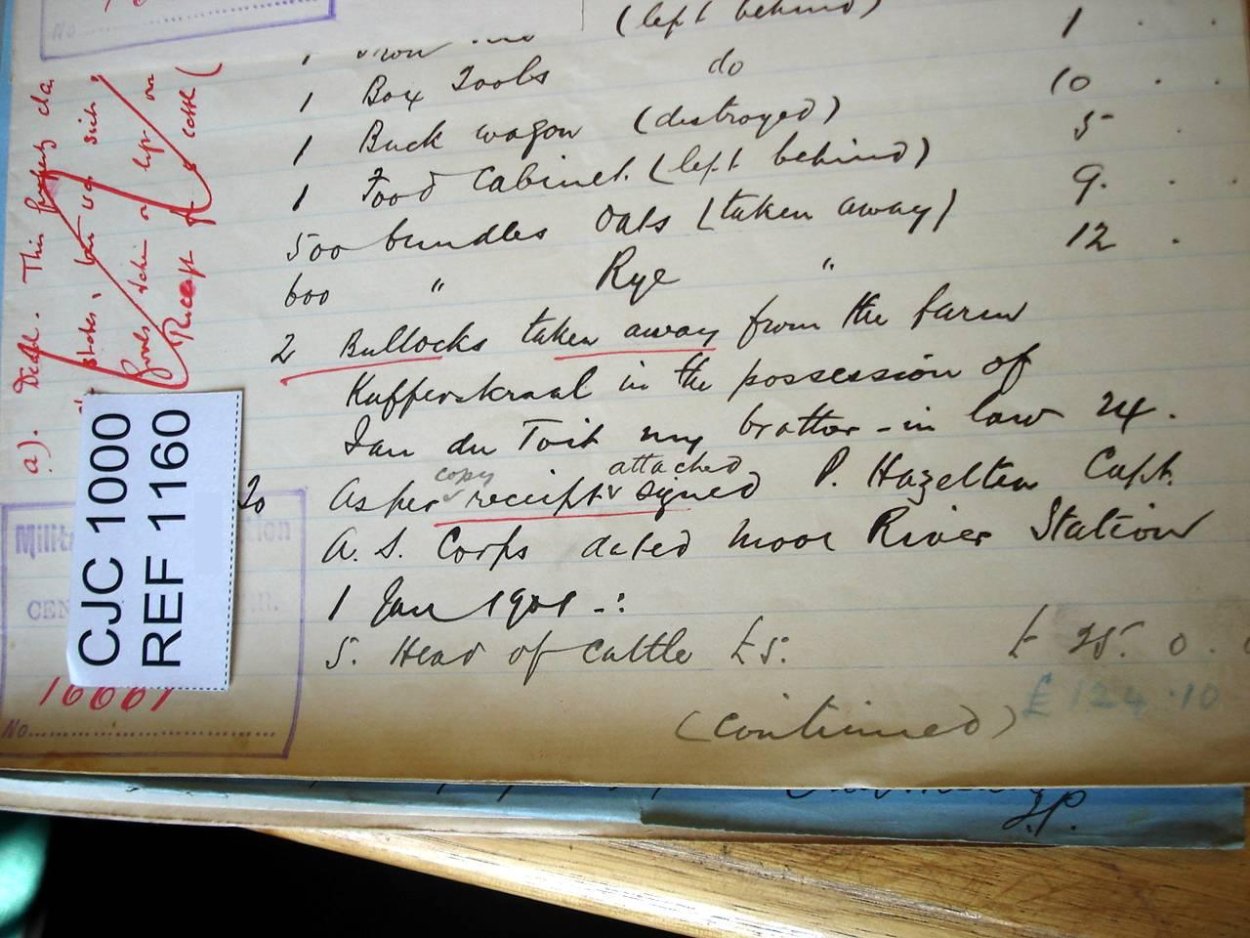 (left behind) 1 . .
1
1 Box Tools do 10 . .
1 Buck wagon (destroyed) 5 .
1 Food Cabinet. (left behind) 9. . .
500 bundles Oats (taken away) 12 .
600 " Rye "
2 Bullocks taken away from the farm
Kafferskraal in the possession of
Jan du Toit my brother-in law 24.
To As per copy receipt attached signed P. Hazelten Capt.
A. S. Corps dated Mooi River Station
1 Jan 1901 -:
5. Head of Cattle £5. £ 25. 0. 0
£124.10
(continued)
J.P.
a). Dedt. This
states,
Receipt
CJC 1000
REF 1160
CEN
16661
No
No